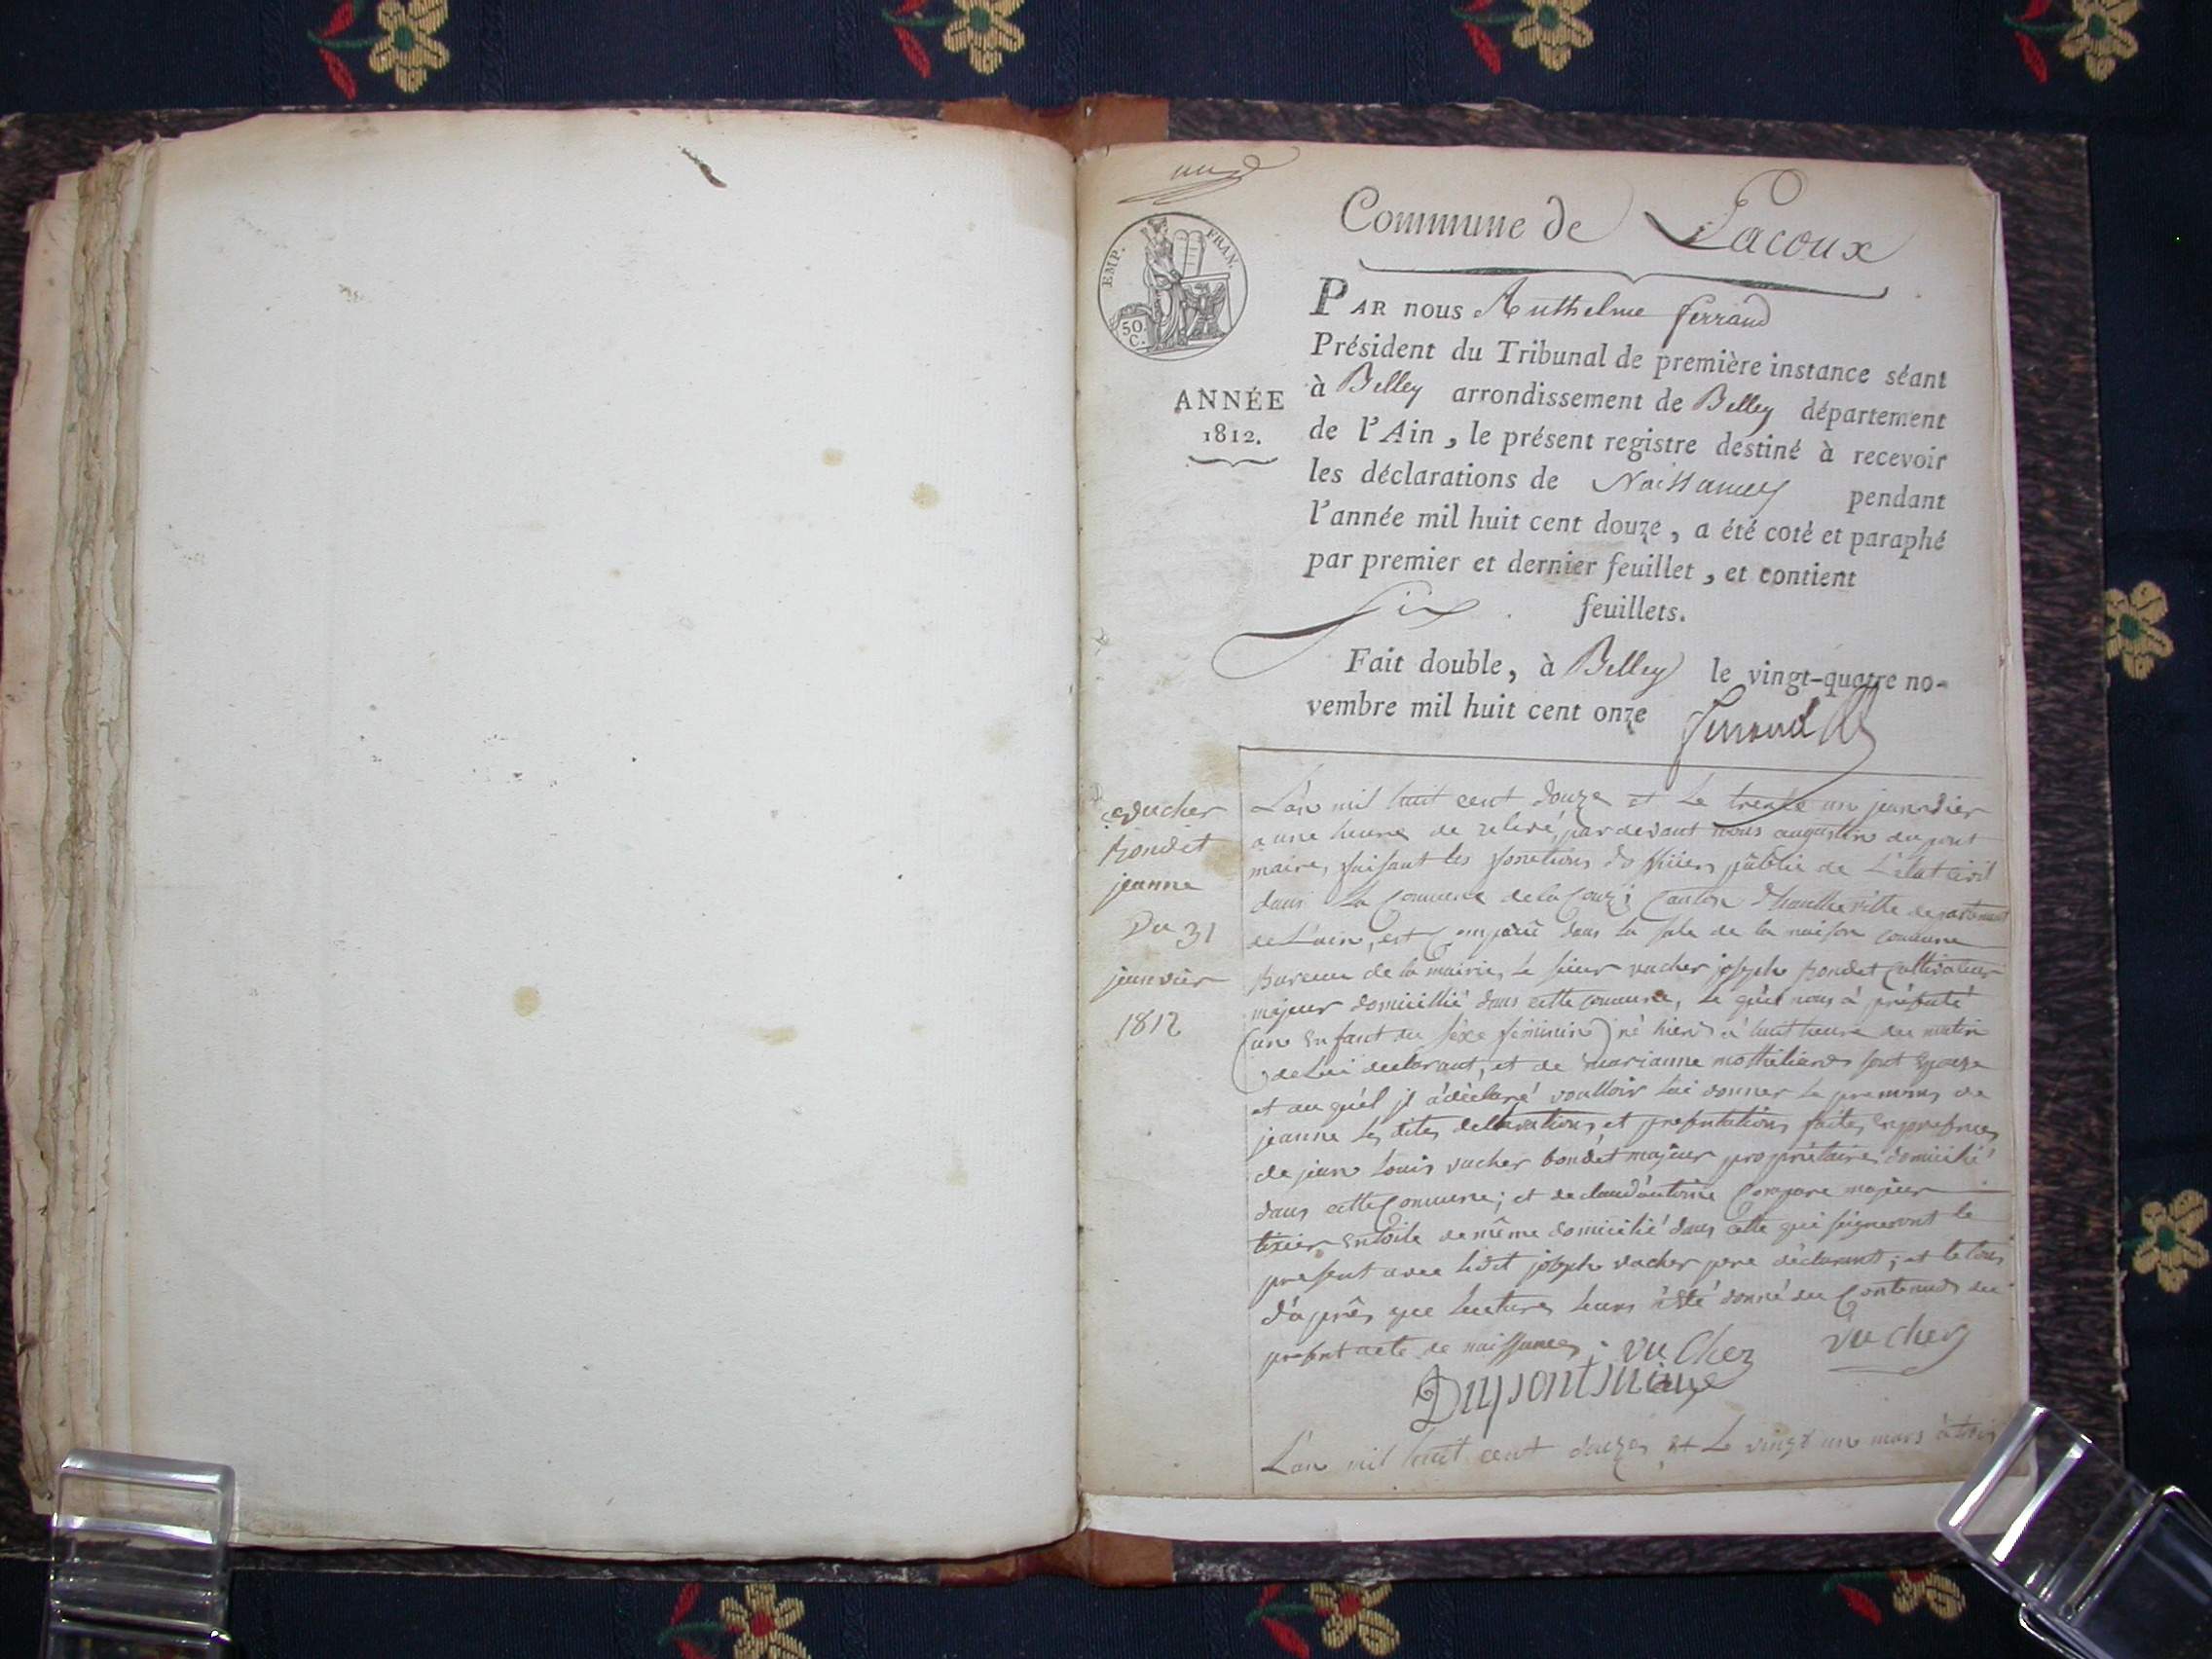 Commune de Lacoux
EMP. FRAN.
50.
C.
ANNÉE
1812.
PAR nous Anthelme ferrand
Président du Tribunal de première instance séant
à Belley arrondissement de Belley département
de l'Ain, le présent registre destiné à recevoir
les déclarations de Naissances pendant
l'année mil huit cent douze, a été coté et paraphé
par premier et dernier feuillet, et contient
six feuillets.
Fait double, à Belley le vingt-quatre no-
vembre mil huit cent onze
ferrand
vucher
bondet
jeanne
Du 31
janvier
1812
L'an mil huit cent douze et le trente un janvdier
a une heure de relevé, pardevant nous augustin dupont
maire, faisant les fonctions d'officier publi de L'état civil
dans la Commune de la Coux; Canton d'hauteville departement
de L'ain, est Comparû dans la sale de la maison commune
Bureau de la mairie, le sieur vucher joseph bondet Cultivateur
majeur domicillié dans cette commune, le quel nous à présenté
(un Enfant du séxe féminin) né hier à huit heure du matin
de Lui declarant, et de marianne sont Epouze
et au quél jl à déclaré voulloir lui donner le prenoms de
jeanne les dites declarations, et presentations faites En presences
de jean Louis vucher bondet majeur propriétaire domicilié
dans cette Commune; et de claud'antoine Compare majeur
tixier Entoile de même domicilié dans cette qui signeront le
present avec ledit joseph vucher pere déclarant; et le tous
d'aprês que lecture leurs à êté donné du Contenud du
present acte de naissances. vuchez vuchez
Dupont Maire
L'an mil huit cent douze, et Le vingt un mars à trois